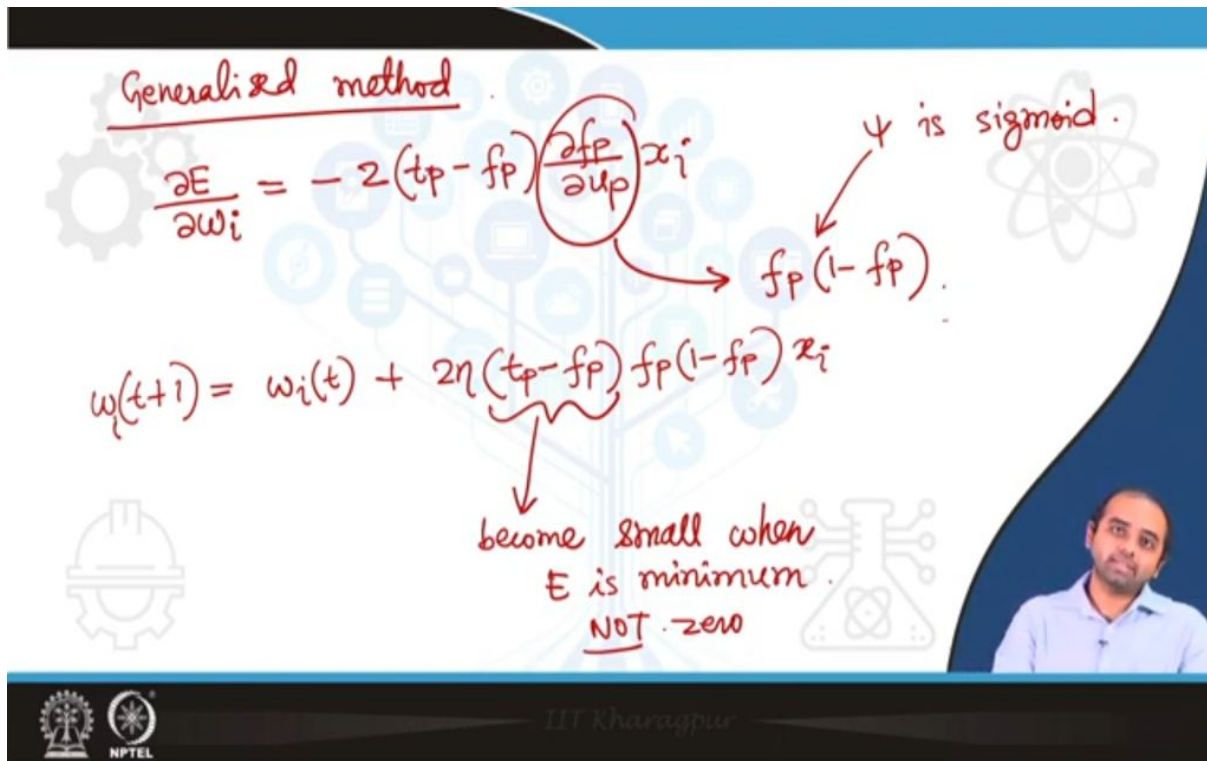 Generalised method.
∂E/∂wi = - 2(tp - fp) ∂fp/∂up xi
ψ is sigmoid.
fp(1 - fp).
wi(t+1) = wi(t) + 2η(tp - fp) fp(1 - fp) xi
become small when
E is minimum.
NOT zero
IIT Kharagpur
NPTEL